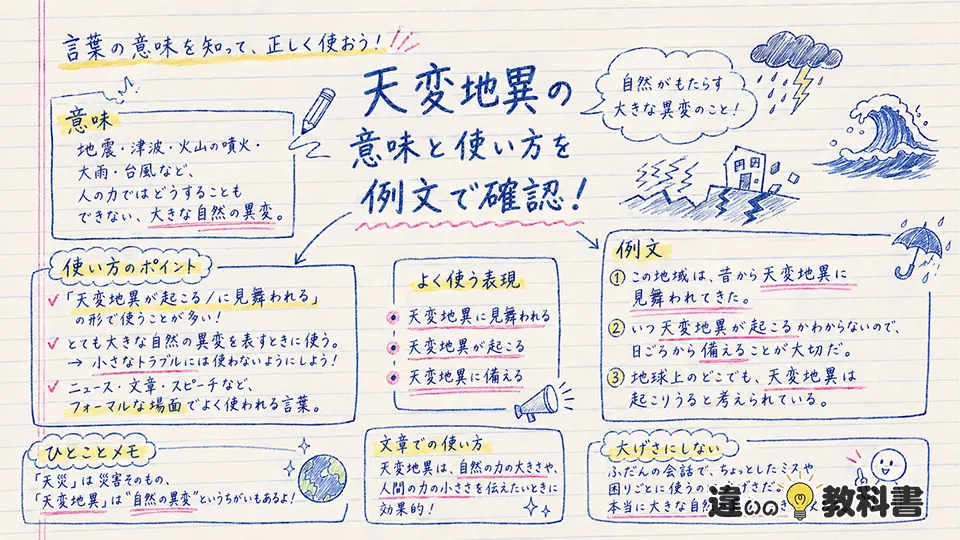 言葉の意味を知って、正しく使おう!
天変地異の
意味と使い方を
例文で確認!
自然がもたらす
大きな異変のこと!
意味
地震・津波・火山の噴火・
大雨・台風など、
人の力ではどうすることも
できない、大きな自然の異変。
使い方のポイント
✓「天変地異が起こる/に見舞われる」
の形で使うことが多い!
✓とても大きな自然の異変を表すときに使う。
→ 小さなトラブルには使わないようにしよう!
✓ニュース・文章・スピーチなど、
フォーマルな場面でよく使われる言葉。
よく使う表現
天変地異に見舞われる
天変地異が起こる
天変地異に備える
例文
① この地域は、昔から天変地異に
見舞われてきた。
② いつ天変地異が起こるかわからないので、
日ごろから備えることが大切だ。
③ 地球上のどこでも、天変地異は
起こりうると考えられている。
ひとことメモ
「天災」は災害そのもの、
「天変地異」は"自然の異変"というちがいもあるよ!
文章での使い方
天変地異は、自然の力の大きさや、
人間の力の小ささを伝えたいときに
効果的!
大げさにしない
ふだんの会話で、ちょっとしたミスや
困りごとに使うの
本当に大きな自然
違いの教科書